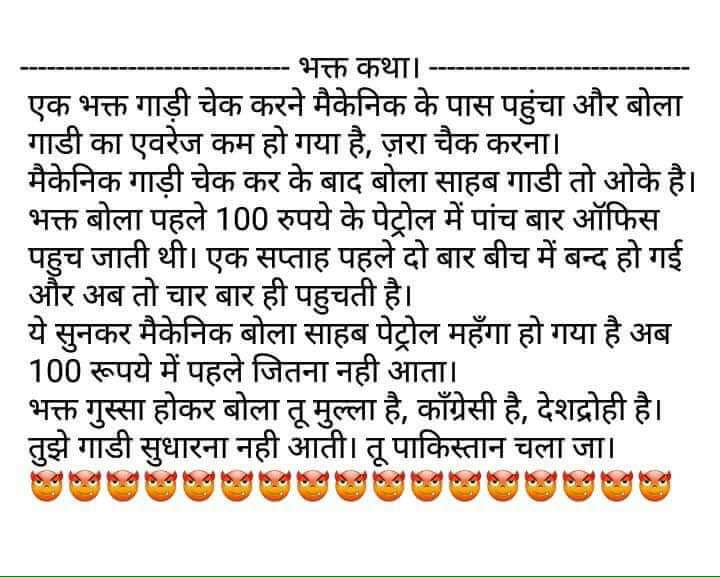 ------------------------------ भक्त कथा। -----------------------------
एक भक्त गाड़ी चेक करने मैकेनिक के पास पहुंचा और बोला
गाडी का एवरेज कम हो गया है, ज़रा चैक करना।
मैकेनिक गाड़ी चेक कर के बाद बोला साहब गाडी तो ओके है।
भक्त बोला पहले 100 रुपये के पेट्रोल में पांच बार ऑफिस
पहुच जाती थी। एक सप्ताह पहले दो बार बीच में बन्द हो गई
और अब तो चार बार ही पहुचती है।
ये सुनकर मैकेनिक बोला साहब पेट्रोल महँगा हो गया है अब
100 रूपये में पहले जितना नही आता।
भक्त गुस्सा होकर बोला तू मुल्ला है, काँग्रेसी है, देशद्रोही है।
तुझे गाडी सुधारना नही आती। तू पाकिस्तान चला जा।